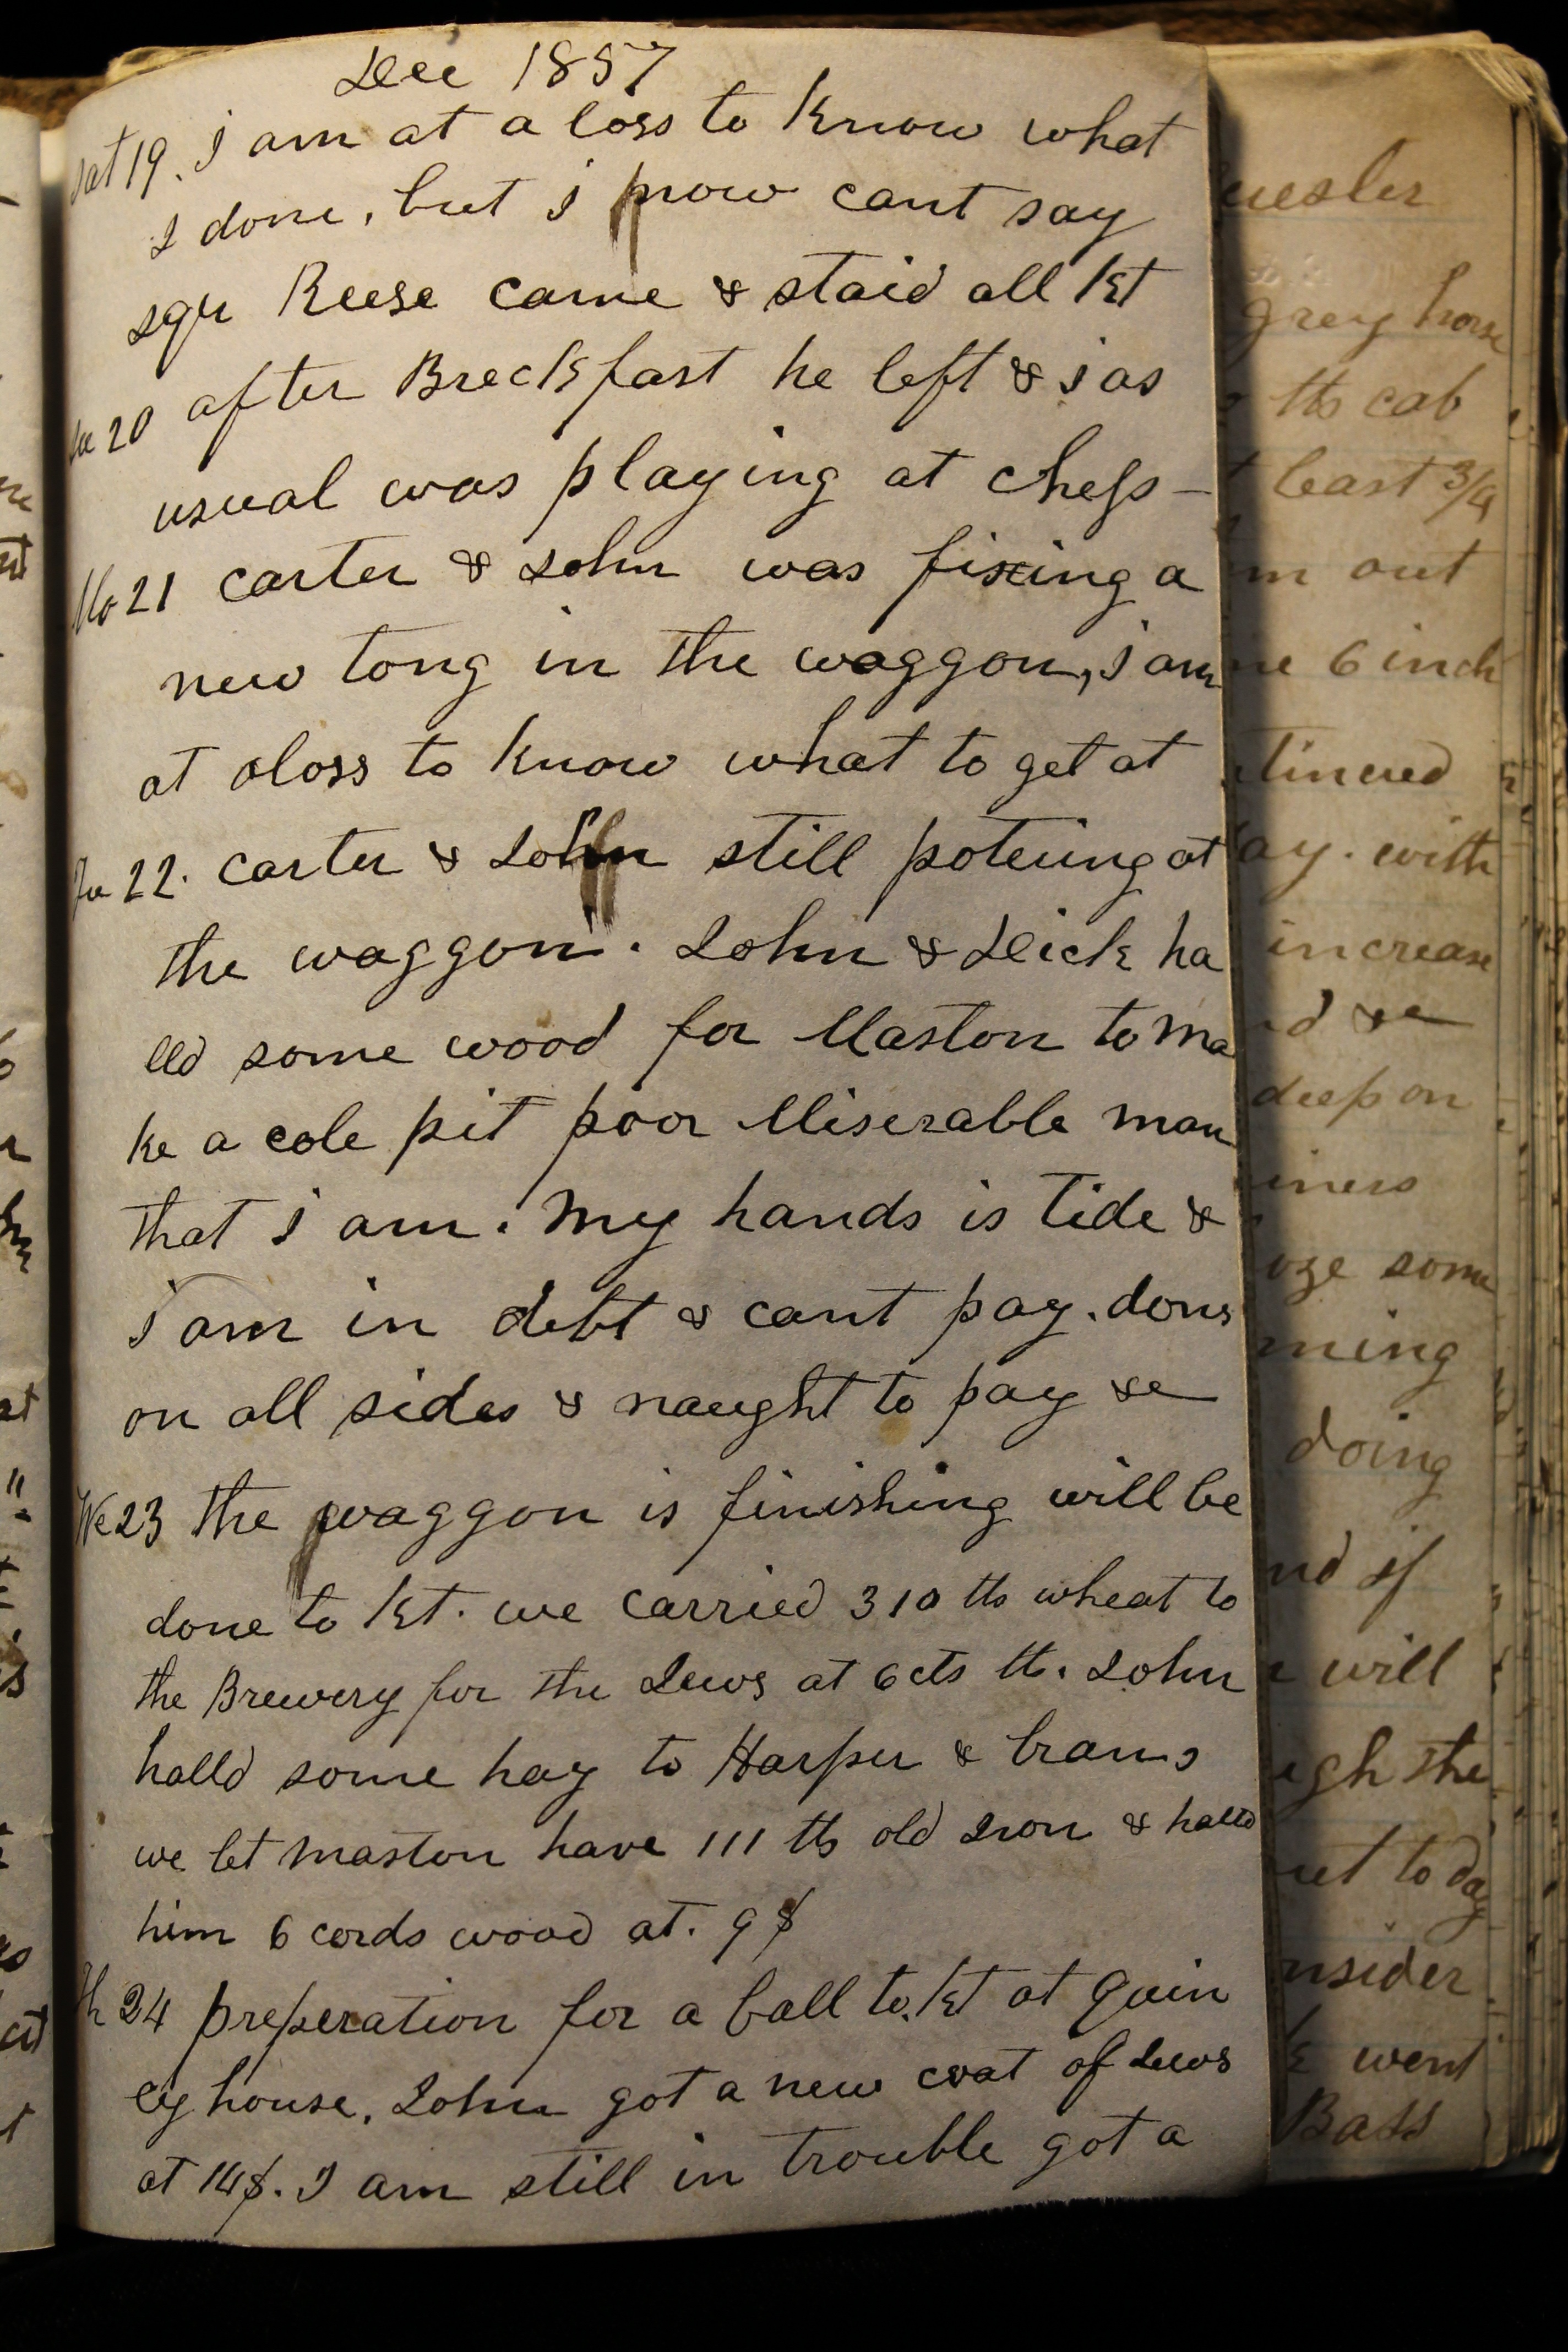 Dec 1857
Sat 19. I am at a loss to know what
I done, but i know cant say
sqr Reese came & staid all kt
Su 20 after Breckfast he left & i as
usual was playing at chess –
Mo 21 carter & John was fixing a
new tong in the waggon, i am
at aloss to know what to get at
Tu 22. carter & John still potering at
the waggon. John & Dick ha
lld some wood for Maston to ma
ke a cole pit poor Miserable man
that i am. my hands is tide &
i am in debt & cant pay. dons
on all sides & naught to pay &c
We 23 the waggon is finishing will be
done to kt. we carried 310 lb wheat to
the Brewery for the Jews at 6 cts lb. John
halld some hay to Harper &
we let maston have 111 lb old Iron & halld
him 6 cords wood at. 9 $
Th 24 preperation for a ball to. kt at Quin
cy house. John got a new coat of Jews
at 14$. I am still in trouble got a
grey horse
lb cab
least 3/4
out
6 inch
with
increase
&c
deep on
some
doing
if
will
the
to day
went
Bass